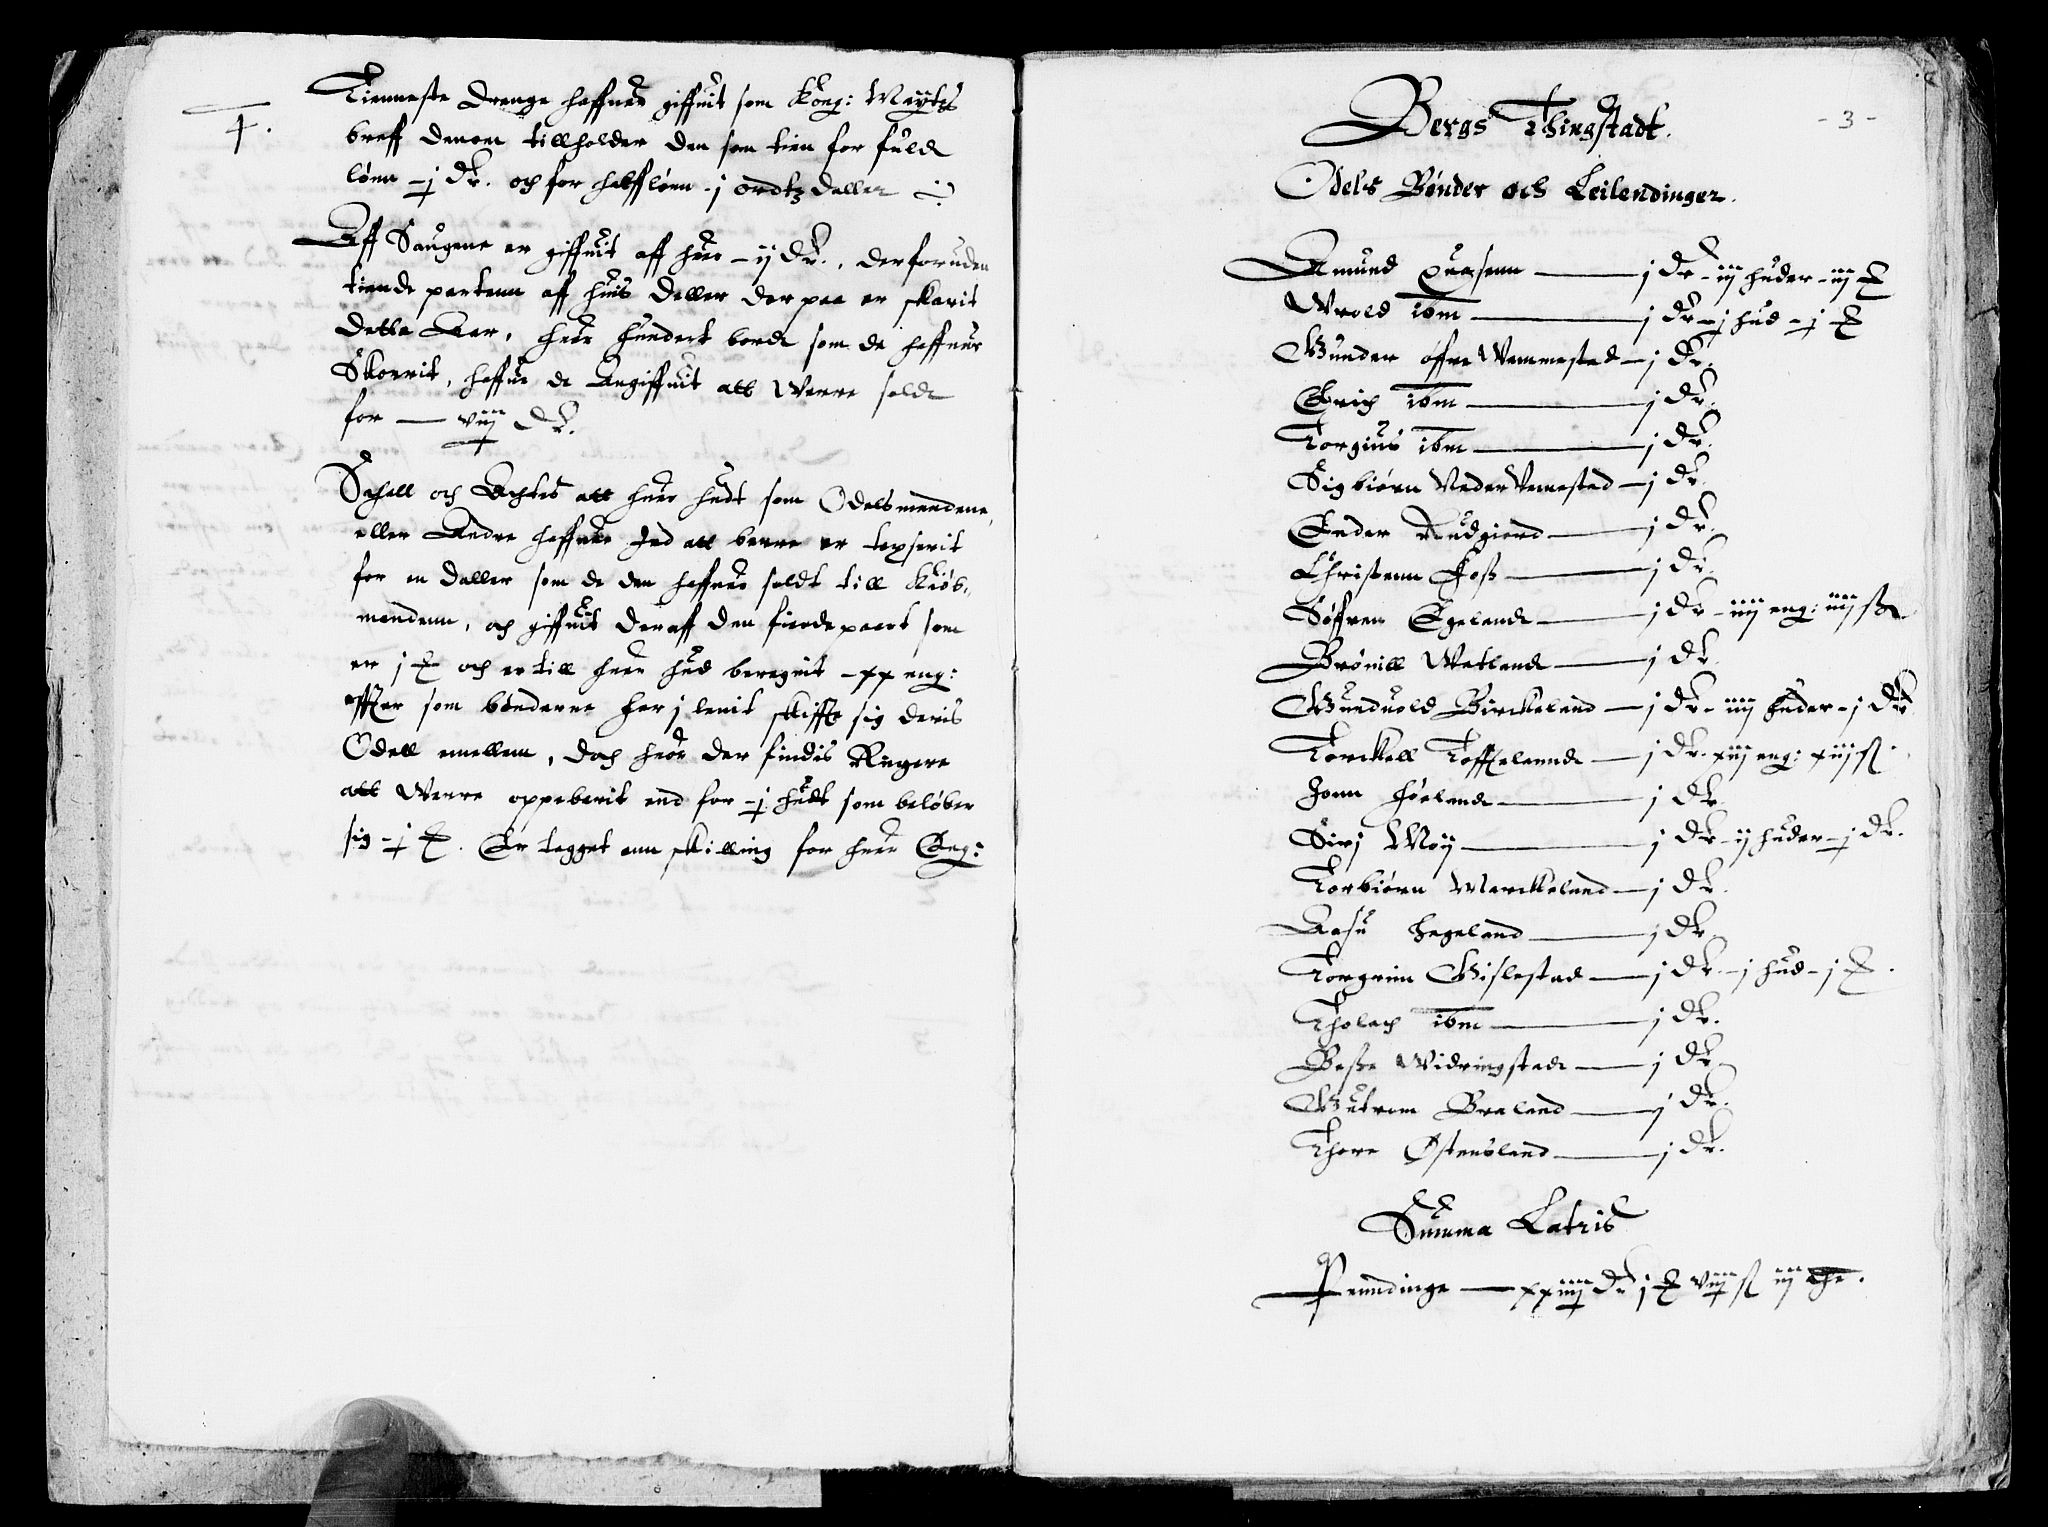 4.
Tienneste Drenge haffuer giffuit som Kong: Maytz
breff denom tillholder den som tien for fuld
lønn - j Dlr. och for halfflønn - j ordtz daller
Aff Saugene er giffuit aff huer - ij Dlr., der foruden
tiende partenn aff huis deller der paa er skarit
dette Aar, huer hundert bord som de haffuer
Skorrit, haffue de Angiffuit att Werre sold
for — viij Dlr.
Schall och Achtes att huer hudt som Odelsmendene,
eller Andre haffuer Jnd att berre er taxserit
for en daller som de den haffuer soldt till Kiøb-
mendenn, och giffuit deraff den fierde paart som
er j ℔ och er till huer hud beregnit - xx eng:
effter som bønderne her j lenit skiffte sig deris
Odell emellem, doch huor der findis Ringere
att Werre oppeberit end for - j hudt som beløber
sig - j ℔. Er tegget enn skilling for huer Eng:
- 3 -
Bergs Thingstadt.
Odels Bønder och Leilendinger.
Amund Quasem — j Dlr - iij huder - iij ℔
Wrold ibm — j Dlr - j hud - j ℔
Gunder øffre Wemmestad — j Dlr.
Erich ibm — j Dlr.
Torgius ibm — j Dlr.
Sigbiørn Neder Wemestad — j Dlr.
Ender Rudgierd — j Dlr.
Christenn Foss — j Dlr.
Søffren Egeland — j Dlr - iiij eng: iiij ß
Brønill Watland — j Dlr.
Gunduold Birckeland — j Dlr - iiij huder - j Dlr
Torckell Tofftelannd — j Dlr. xiij eng: xiij ß.
Jonn Høeland — j Dlr.
Sirj Møij — j Dlr - ij huder - j Dlr.
Torbiørn Marckeland — j Dlr.
Aasu Hegeland — j Dlr
Torgrim Gislestad — j Dlr. - j hud - j ℔.
Tholach ibm — j Dlr.
Besse Widringstad — j Dlr
Gutrom Braland — j Dlr.
Thore Østensland — j Dlr.
Summa Latris
Penndinge — xxiiij Dlr j ℔ viij ß iij